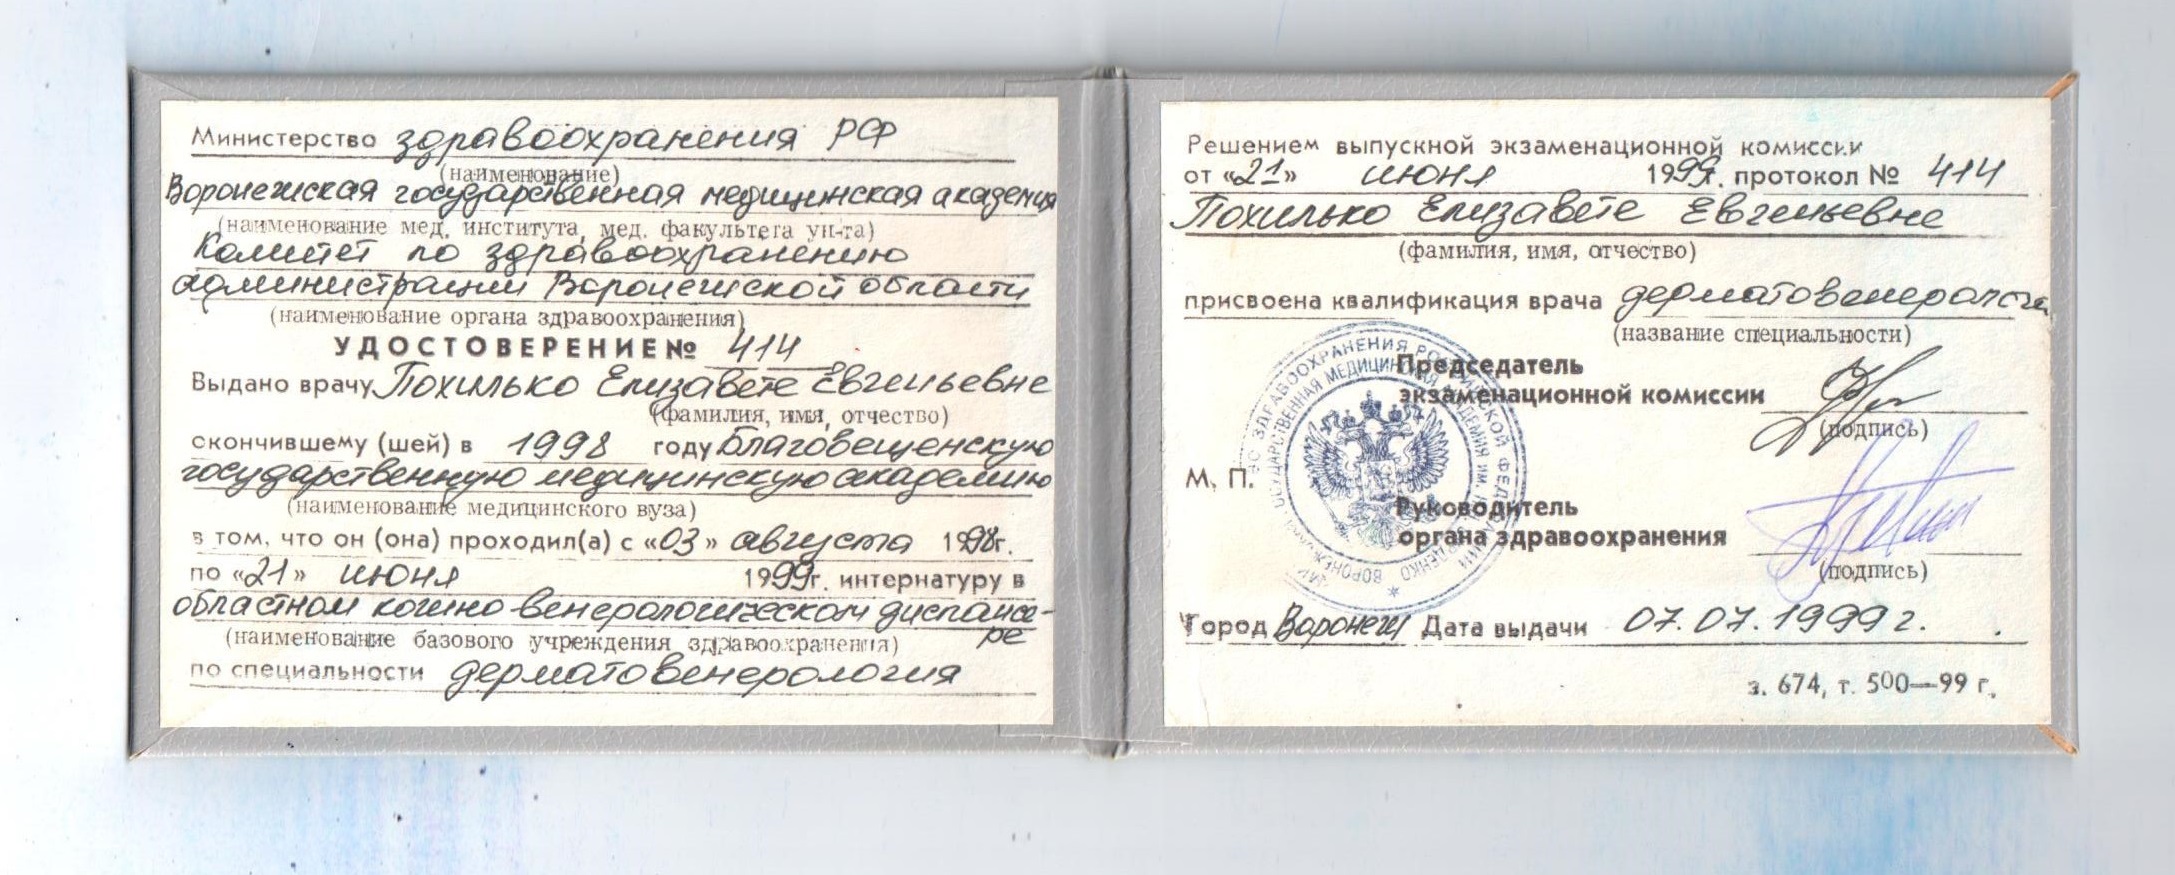 Министерство здравоохранения РФ
(наименование)
Воронежская государственная медицинская академия
(наименование мед. института, мед. факультета ун-та)
Комитет по здравоохранению
администрации Воронежской области
(наименование органа здравоохранения)
УДОСТОВЕРЕНИЕ № 414
Выдано врачу Похилько Елизавете Евгеньевне
(фамилия, имя, отчество)
скончившему (шей) в 1998 году Благовещенскую
государственную медицинскую академию
(наименование медицинского вуза)
в том, что он (она) проходил(а) с «03» августа 1998г.
по «21» июня 1999г. интернатуру в
областном кожно-венерологическом диспансе-
ре
(наименование базового учреждения здравоохранения)
по специальности дерматовенерология
Решением выпускной экзаменационной комиссии
от «21» июня 1999г. протокол № 414
Похилько Елизавете Евгеньевне
(фамилия, имя, отчество)
присвоена квалификация врача дерматовенеролога
(название специальности)
Председатель
экзаменационной комиссии
(подпись)
М. П.
Руководитель
органа здравоохранения
(подпись)
Город Воронеж Дата выдачи 07.07.1999 г.
з. 674, т. 500—99 г.
ЗДРАВООХРАНЕНИЯ РОССИЙСКОЙ ФЕДЕРАЦИИ
ГОСУДАРСТВЕННАЯ МЕДИЦИНСКАЯ АКАДЕМИЯ ИМ. Н.Н. БУРДЕНКО * ВОРОНЕЖСКАЯ